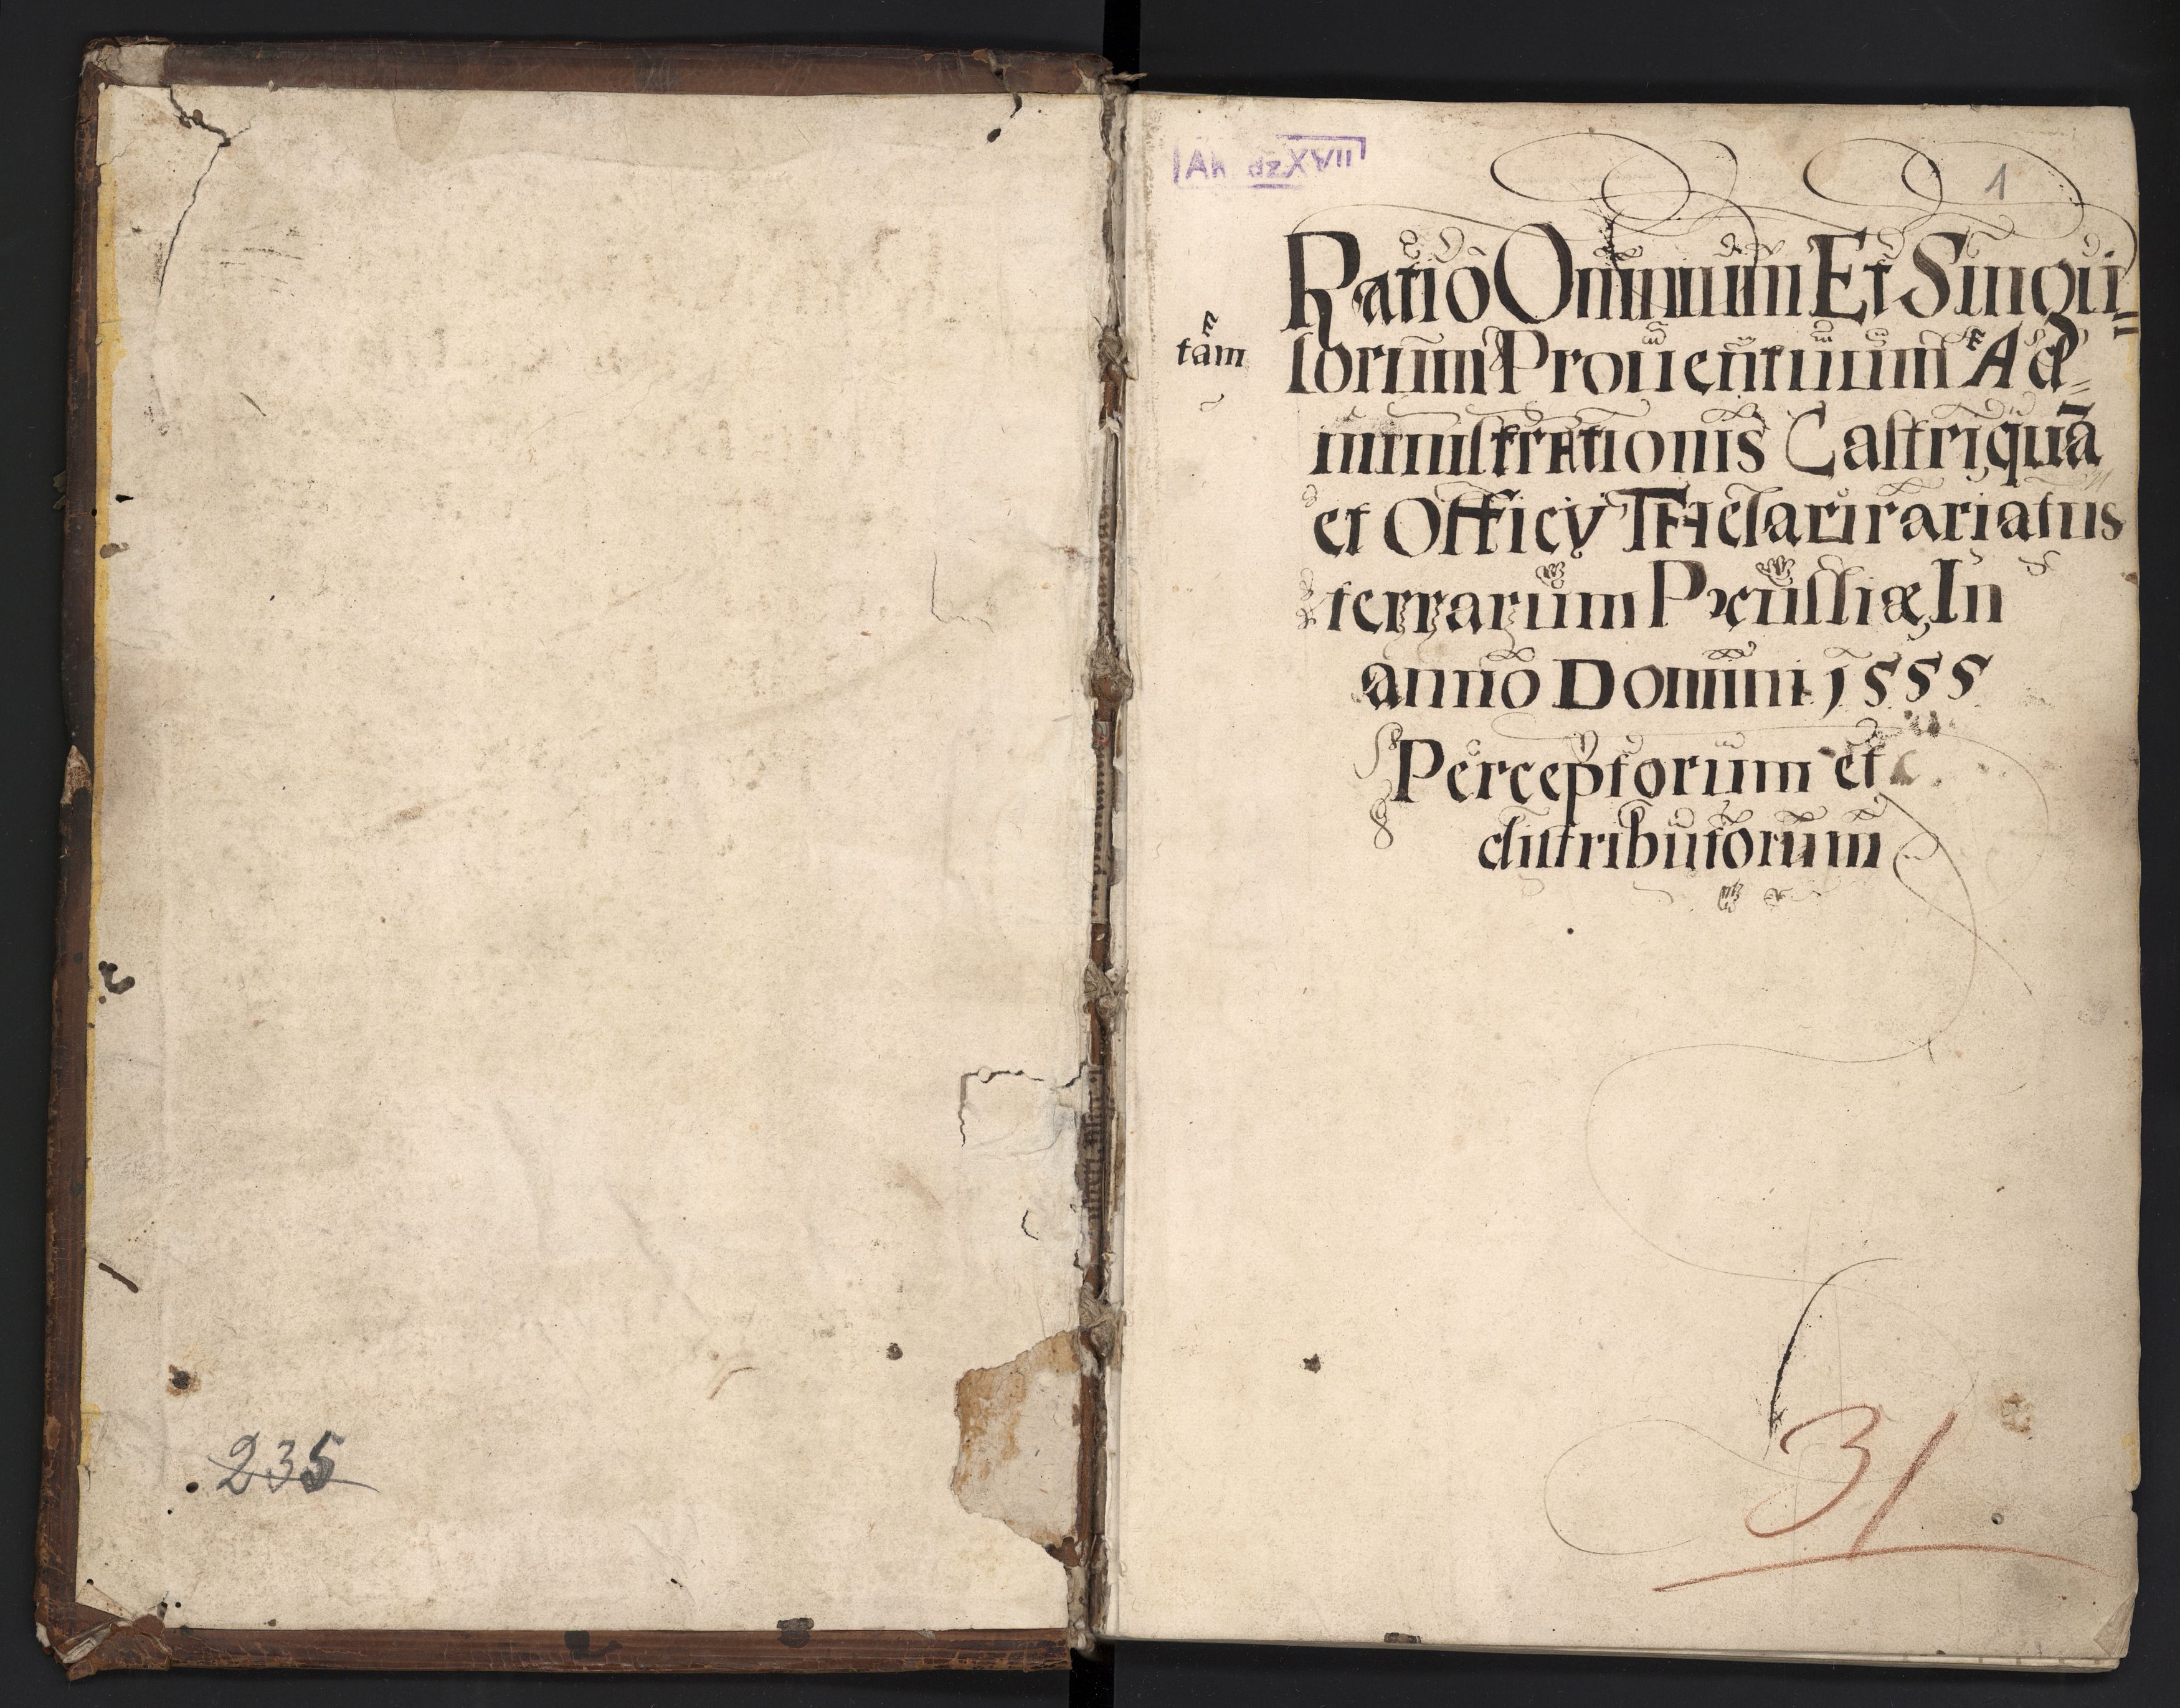 235
1
Ratio Omnium Et Singu=
tam
lorum Prouentuum Ad=
ministrationis Castri, quā
et Officy Thesaurariatus
terrarum Prussiæ In
anno Domini 1555
Perceptorum et
distributorum
31